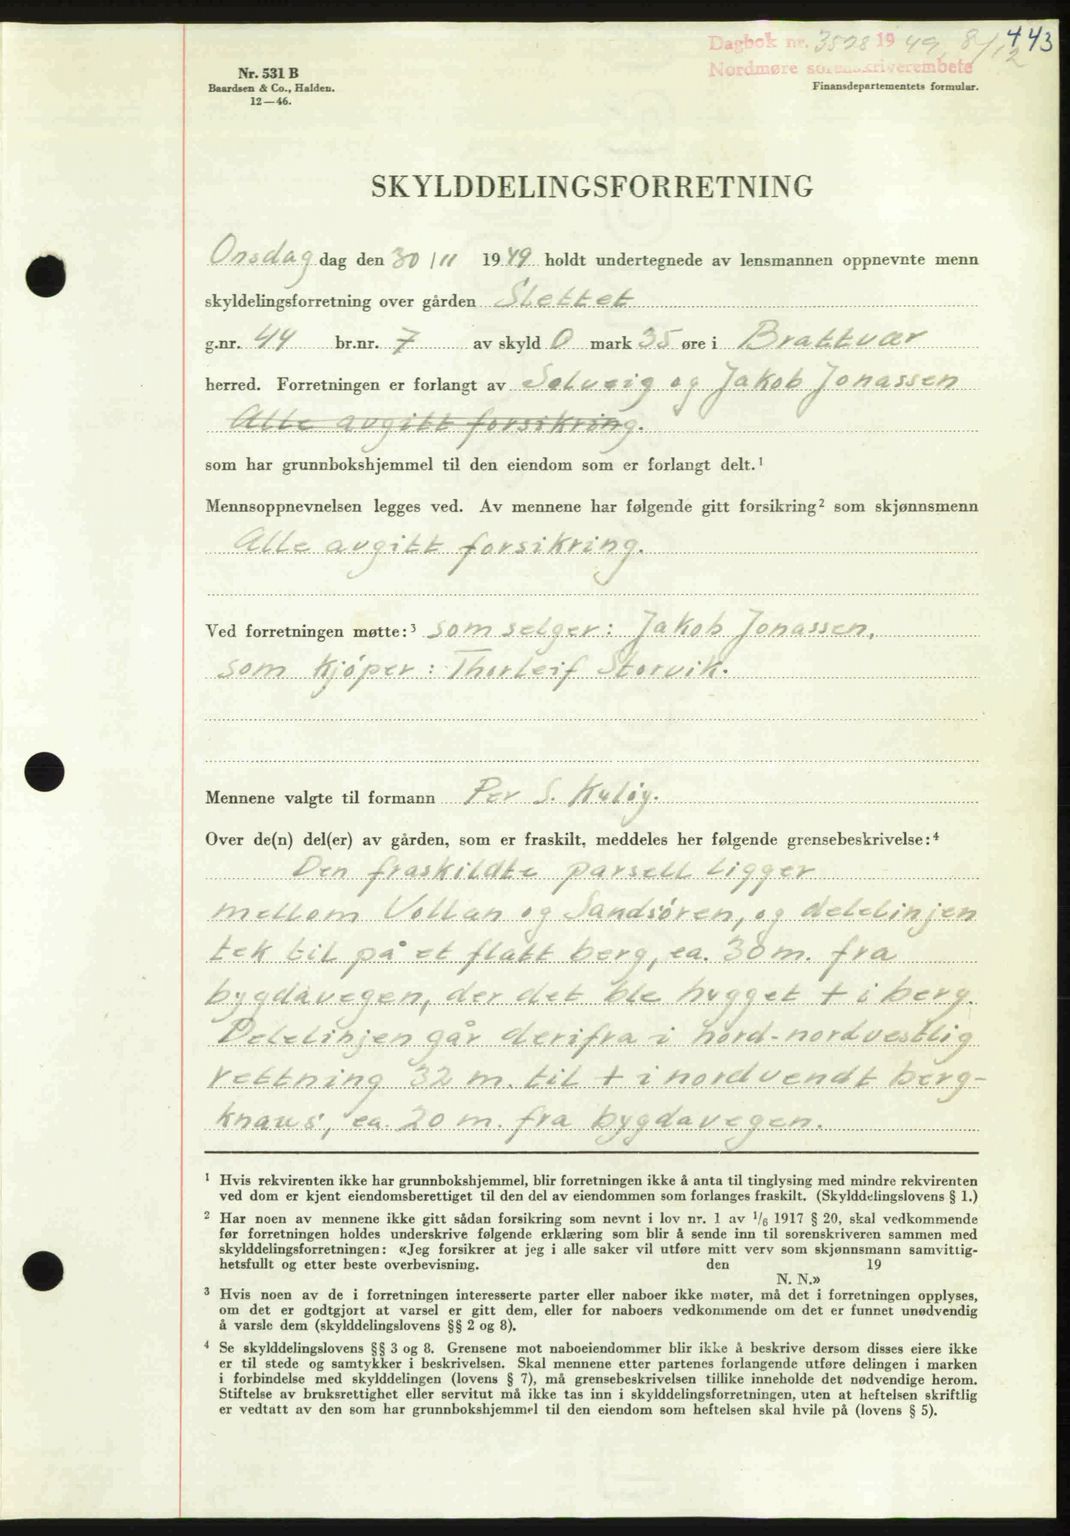 Dagbok nr. 3528 1949, 8/12 443
Nordmøre sorenskriverembete
Nr. 531 B
Baardsen & Co., Halden.
12—46.
Finansdepartementets formular.
SKYLDDELINGSFORRETNING
Onsdag dag den 30/11 1949 holdt undertegnede av lensmannen oppnevnte menn
skyldelingsforretning over gården Slettet
g.nr. 44 br.nr. 7 av skyld 0 mark 35 øre i Brattvær
herred. Forretningen er forlangt av Solveig og Jakob Jonassen
Alle avgitt forsikring.
som har grunnbokshjemmel til den eiendom som er forlangt delt.¹
Mennsoppnevnelsen legges ved. Av mennene har følgende gitt forsikring² som skjønnsmenn
Alle avgitt forsikring.
Ved forretningen møtte:³ som selger: Jakob Jonassen,
som kjøper: Thorleif Storvik.
Mennene valgte til formann Per S. Kuløy.
Over de(n) del(er) av gården, som er fraskilt, meddeles her følgende grensebeskrivelse:⁴
Den fraskildte parsell ligger
mellom Vollan og Sandsøren, og delelinjen
tek til på et flatt berg, ca. 30 m. fra
bygdavegen, der det ble hugget + i berg.
Delelinjen går derifra i nord-nordvestlig
rettning 32 m. til + i nordvendt berg-
knaus, ca. 20 m. fra bygdavegen.
¹ Hvis rekvirenten ikke har grunnbokshjemmel, blir forretningen ikke å anta til tinglysing med mindre rekvirenten
ved dom er kjent eiendomsberettiget til den del av eiendommen som forlanges fraskilt. (Skylddelingslovens § 1.)
² Har noen av mennene ikke gitt sådan forsikring som nevnt i lov nr. 1 av ¹/₆ 1917 § 20, skal vedkommende
før forretningen holdes underskrive følgende erklæring som blir å sende inn til sorenskriveren sammen med
skylddelingsforretningen: «Jeg forsikrer at jeg i alle saker vil utføre mitt verv som skjønnsmann samvittig-
hetsfullt og etter beste overbevisning. den 19
N. N.»
³ Hvis noen av de i forretningen interesserte parter eller naboer ikke møter, må det i forretningen opplyses,
om det er godtgjort at varsel er gitt dem, eller for naboers vedkommende om det er funnet unødvendig
å varsle dem (skylddelingslovens §§ 2 og 8).
⁴ Se skylddelingslovens §§ 3 og 8. Grensene mot naboeiendommer blir ikke å beskrive dersom disses eiere ikke
er til stede og samtykker i beskrivelsen. Skal mennene etter partenes forlangende utføre delingen i marken
i forbindelse med skylddelingen (lovens § 7), må grensebeskrivelsen tillike inneholde det nødvendige herom.
Stiftelse av bruksrettighet eller servitut må ikke tas inn i skylddelingsforretningen, uten at heftelsen skriftlig
er vedtatt av den som har grunnbokshjemmel til den eiendom som heftelsen skal hvile på (lovens § 5).